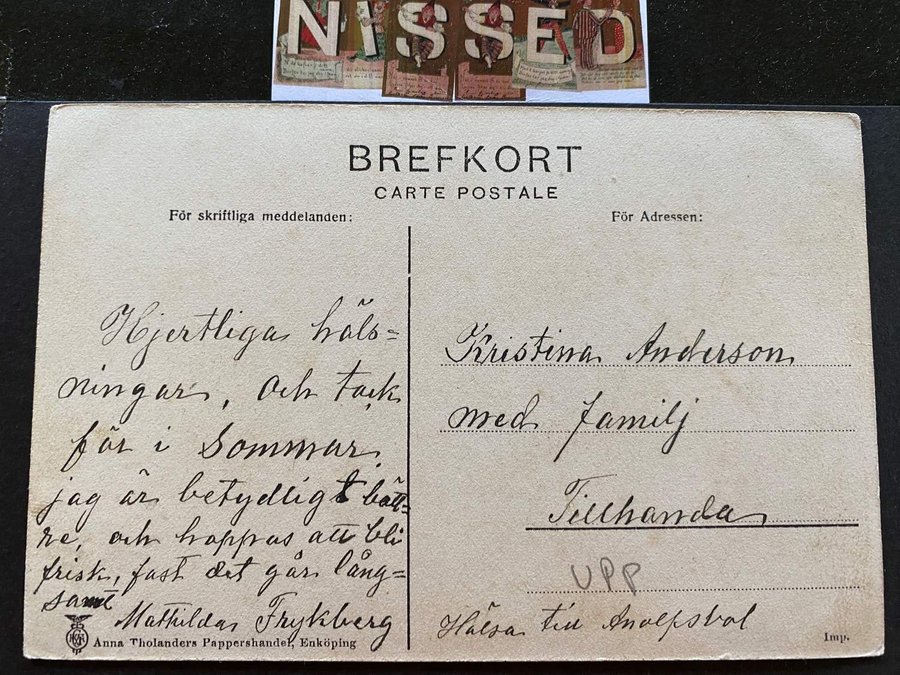 NISSED
BREFKORT
CARTE POSTALE
För skriftliga meddelanden:
För Adressen:
Hjertliga häls=
ningar, och tack
för i Sommar
jag är betydligt bätt=
re, och hoppas att bli
frisk, fast det går lång=
samt
Mathilda Frykberg
Anna Tholanders Pappershandel, Enköping
Kristina Anderson
med familj
Tillhanda
UPP
Hälsa till
Imp.